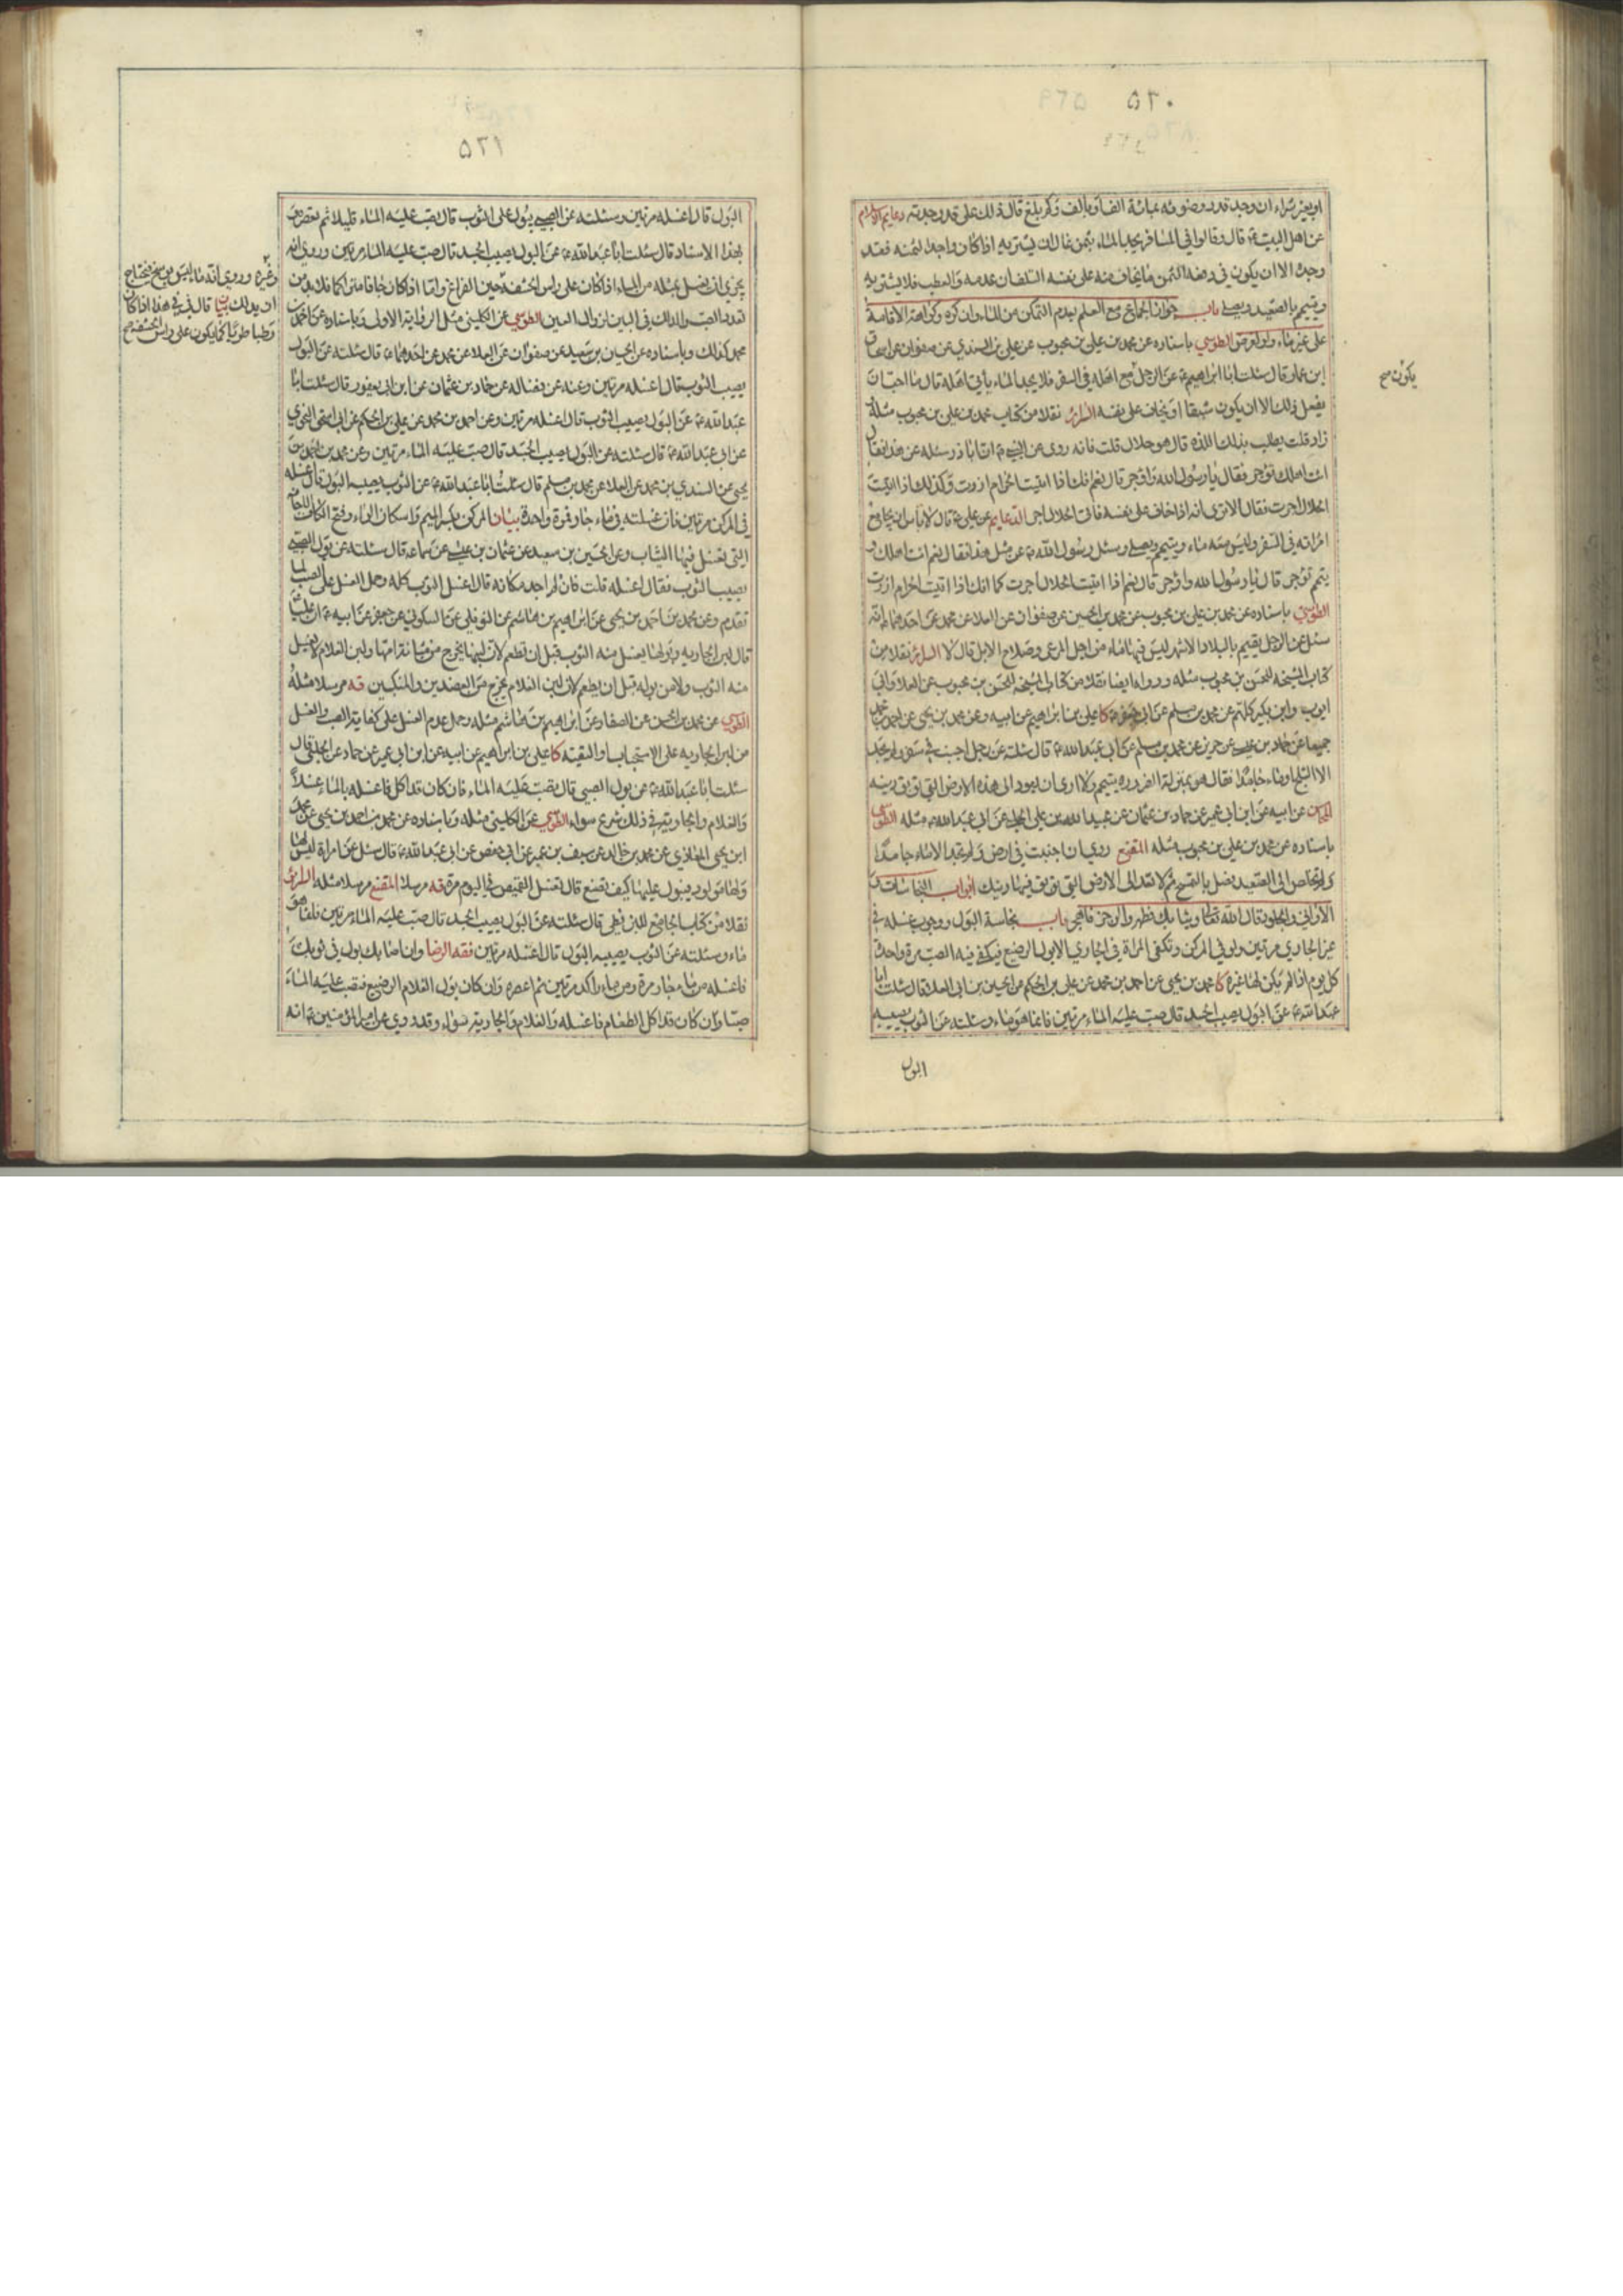 ٥٢٠
او يعيز شراء ان وجد قدر وضوئه بمائة الف او بالف وكم بلغ قال ذلك على قدر جدته دعايم الاسلام
عن اهل البيت ع قال وقالوا في المسافر يجد الماء بثمن غال ان يشتريه اذا كان واجدا لثمنه فقد
وجده الا ان يكون في دفعه الثمن ما يخاف منه على نفسه التلف ان عدمه والعطب فلا يشتريه
ويتيمم بالصعيد ويصلي باب جواز الجماع مع العلم بعدم التمكن من الماء وان كره وكراهة الاقامة
على غير ماء ولو لغرض الطوسي باسناده عن محمد بن علي بن محبوب عن علي بن السندي عن صفوان عن اسحاق
ابن عمار قال سئلت ابا ابراهيم ع عن الرجل مع اهله في السفر فلا يجد الماء يأتي اهله قال ما احب ان
يفعل ذلك الا ان يكون شبقا او يخاف على نفسه السرائر نقلا من كتاب محمد بن علي بن محبوب مثله
زاد قلت يطلب بذلك اللذة قال هو حلال قلت فانه روى عن النبي ص ان ابا ذر سئله عن هذا فقال
ائت اهلك توجر فقال يا رسول الله واوجر قال نعم انك اذا اتيت الحرام ازرت وكذلك اذا اتيت
الحلال اجرت فقال الا ترى انه اذا خاف على نفسه فاتى الحلال اجر الدعايم عن علي ع قال لا باس ان يجامع
امراته في السفر وليس معه ماء ويتيمم ويصلي وسئل رسول الله ص عن مثل هذا فقال نعم ائت اهلك و
يتمم توجر قال يا رسول الله واوجر قال نعم اذا اتيت الحلال اجرت كما انك اذا اتيت الحرام ازرت
الطوسي باسناده عن محمد بن علي بن محبوب عن محمد بن الحسين عن صفوان عن العلا عن محمد عن احدهما ع انه
سئل عن الرجل يقيم بالبلاد الاشهر ليس فيها ماء من اجل المرعى وصلاح الابل قال لا السرائر نقلا من
كتاب المشيخة للحسن بن محبوب مثله وروا ايضا نقلا من كتاب المشيخة للحسن بن محبوب عن العلا وابي
ايوب وابن بكير كلهم عن محمد بن مسلم عن ابي جعفر ع كا علي بن ابراهيم عن ابيه وعن محمد بن يحيى عن احمد بن محمد
جميعا عن حماد بن عيسى عن حريز عن محمد بن مسلم عن ابي عبد الله ع قال سئلته عن رجل اجنب في سفر ولم يجد
الا الثلج او ماء جامدا فقال هو بمنزلة الضرورة يتيمم ولا ارى ان يعود الى هذه الارض التي توبق دينه
عن ابيه عن ابن ابي عمير عن حماد بن عثمان عن عبيد الله بن علي الحلبي عن ابي عبد الله ع مثله الطوسي
باسناده عن محمد بن علي بن محبوب مثله المقنع روي ان اجنبت في ارض ولم تجد الا ماء جامدا
ولم تخلص الى الصعيد فصل بالتمسح ثم لا تعد الى الارض التي توبق فيها دينك ابواب النجاسات و
الاواني والجلود قال الله تعالى وثيابك فطهر والرجز فاهجر باب نجاسة البول ووجوب غسله في
غير الجاري مرتين ولو في المركن وتكفي المرة في الجاري الا بول الرضيع فيكفي فيه الصب مرة واحدة
كل يوم اذا لم يكن لها غيره كا محمد بن يحيى عن احمد بن محمد عن علي بن الحكم عن الحسين بن ابي العلا قال سئلت ابا
عبد الله ع عن البول يصيب الجسد قال صب عليه الماء مرتين فانما هو ماء وسئلته عن الثوب يصيبه
البول
يكون صح
٥٢١
البول قال اغسله مرتين وسئلته عن الصبي يبول على الثوب قال يصب عليه الماء قليلا ثم يعصره
بهذا الاسناد قال سئلت ابا عبد الله ع عن البول يصيب الجسد قال صب عليه الماء مرتين وروي انه
يجزي ان يغسل بمثله من الماء اذا كان على راس الحشفة حين الفراغ
تعدد الصب والدلك الطوسي عن الكليني مثل الرواية الاولى وباسناده عن احمد بن
محمد كذلك وباسناده عن الحسين بن سعيد عن صفوان عن العلا عن محمد عن احدهما ع قال سئلته عن البول
يصيب الثوب قال اغسله مرتين وعنه عن فضاله عن حماد بن عثمان عن ابن ابي يعفور قال سئلت ابا
عبد الله ع عن البول يصيب الثوب قال اغسله مرتين وعن احمد بن محمد عن علي بن الحكم عن ابي اسحق النحوي
عن ابي عبد الله ع قال سئلته عن البول يصيب الجسد قال صب عليه الماء مرتين وعن محمد بن احمد بن
يحيى عن السندي بن محمد عن العلا عن محمد بن مسلم قال سئلت ابا عبد الله ع عن الثوب يصيبه البول قال اغسله
في المركن مرتين فان غسلته في ماء جار فمرة واحدة بيان المركن بكسر الميم واسكان الراء وفتح الكاف
التي تغسل فيها الثياب وعن الحسين بن سعيد عن عثمان بن عيسى عن سماعة قال سئلته عن بول الصبي
يصيب الثوب فقال اغسله قلت فان لم اجد مكانه قال اغسل الثوب كله وحمل الغسل على الصب لما
تقدم وعن محمد بن احمد بن يحيى عن ابراهيم بن هاشم عن النوفلي عن السكوني عن جعفر عن ابيه ع ان عليا
قال لبن الجارية وبولها يغسل منه الثوب قبل ان تطعم لان لبنها يخرج من مثانة امها ولبن الغلام لا يغسل
منه الثوب ولا من بوله قبل ان يطعم لان لبن الغلام يخرج من العضدين والمنكبين قه مرسلا مثله
الطوسي عن محمد بن الحسن عن الصفار عن ابراهيم بن هاشم مثله وحمل عدم الغسل على كفاية الصب والغسل
من لبن الجارية على الاستحباب والتقية كا علي بن ابراهيم عن ابيه عن ابن ابي عمير عن حماد عن الحلبي قال
سئلت ابا عبد الله ع عن بول الصبي قال تصب عليه الماء فان كان قد اكل فاغسله بالماء غسلا
والغلام والجارية في ذلك شرع سواء الطوسي عن الكليني مثله وباسناده عن محمد بن احمد بن يحيى عن محمد
ابن يحيى المعاذي عن محمد بن خالد عن سيف بن عميرة عن ابي حفص عن ابي عبد الله ع قال سئل عن امراة ليس لها الا قميص
ولها مولود يبول عليها كيف تصنع قال تغسل القميص في اليوم مرة قه مرسلا المقنع مرسلا مثله السرائر
نقلا من كتاب الجامع للبزنطي قال سئلته عن البول يصيب الجسد قال صب عليه الماء مرتين فانما هو
ماء وسئلته عن الثوب يصيبه البول قال اغسله مرتين فقه الرضا وان اصابك بول في ثوبك
فاغسله من ماء جار مرة ومن ماء راكد مرتين ثم اعصره وان كان بول الغلام الرضيع فتصب عليه الماء
صبا وان كان قد اكل الطعام فاغسله والغلام والجارية سواء وقد روي عن امير المؤمنين ع انه
وغيره وروي انه ماء ليس بوسخ فيحتاج
ان يدلك بيان قال في هذا اذا كان
رطبا طريا كما يكون على راس الحشفة صح